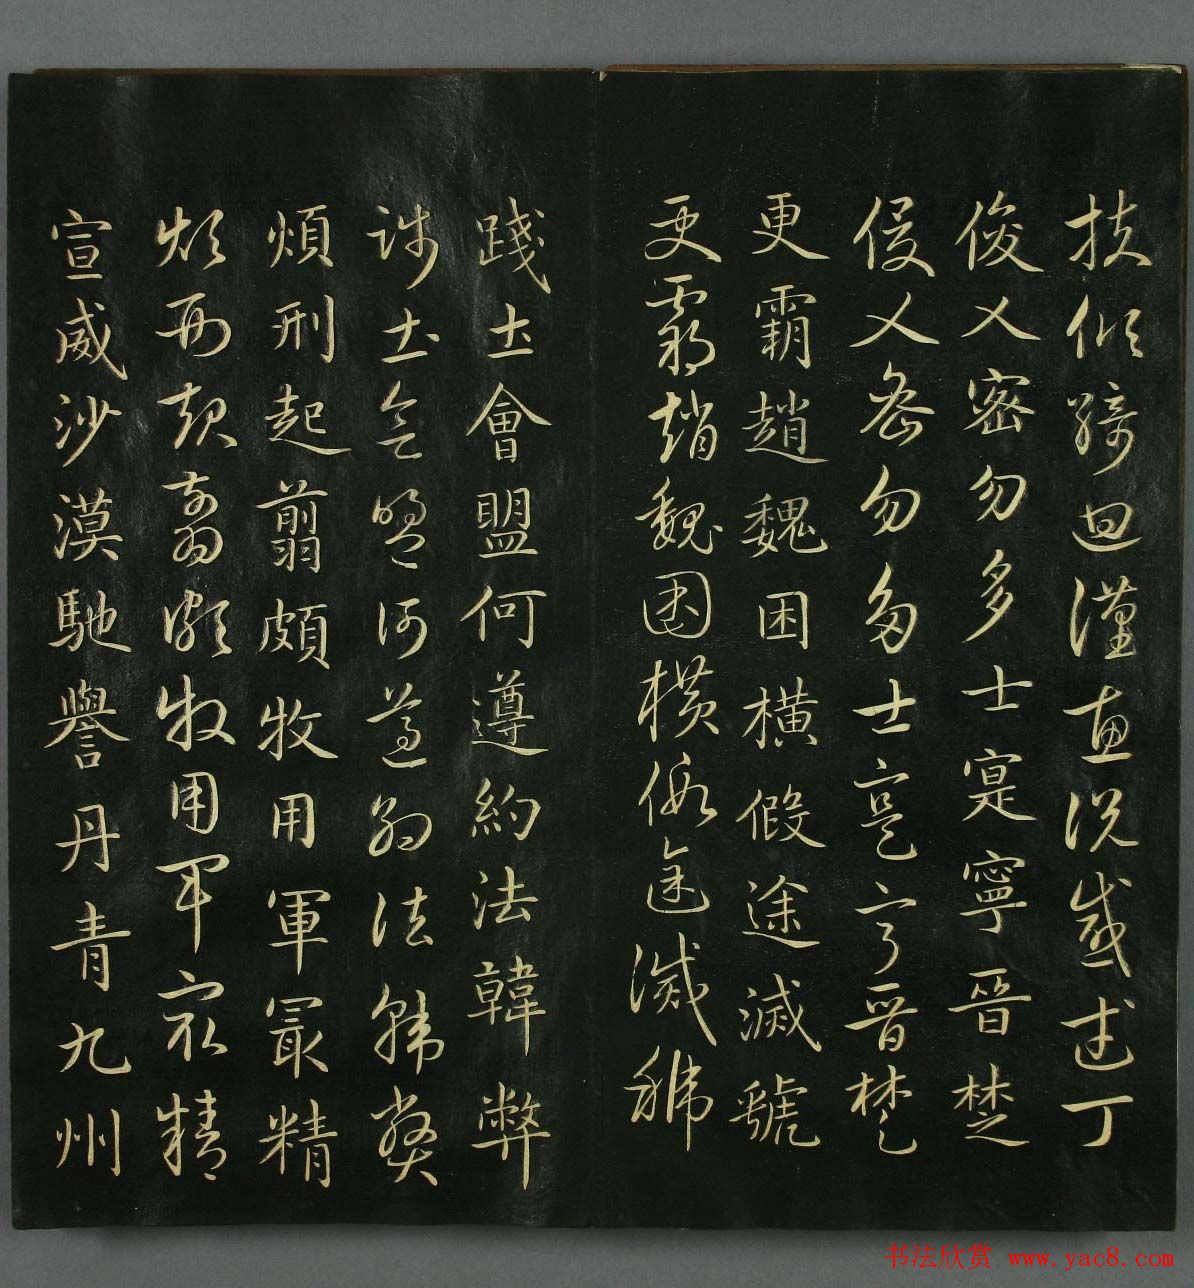 扶傾綺迴漢惠説感武丁
俊乂密勿多士寔寧晉楚
俊乂密勿多士寔寧晉楚
更霸趙魏困橫假途滅虢
更霸趙魏困橫假途滅虢
踐土會盟何遵約法韓弊
踐土會盟何遵約法韓弊
煩刑起翦頗牧用軍最精
煩刑起翦頗牧用軍最精
宣威沙漠馳譽丹青九州
书法欣赏 www.yac8.com